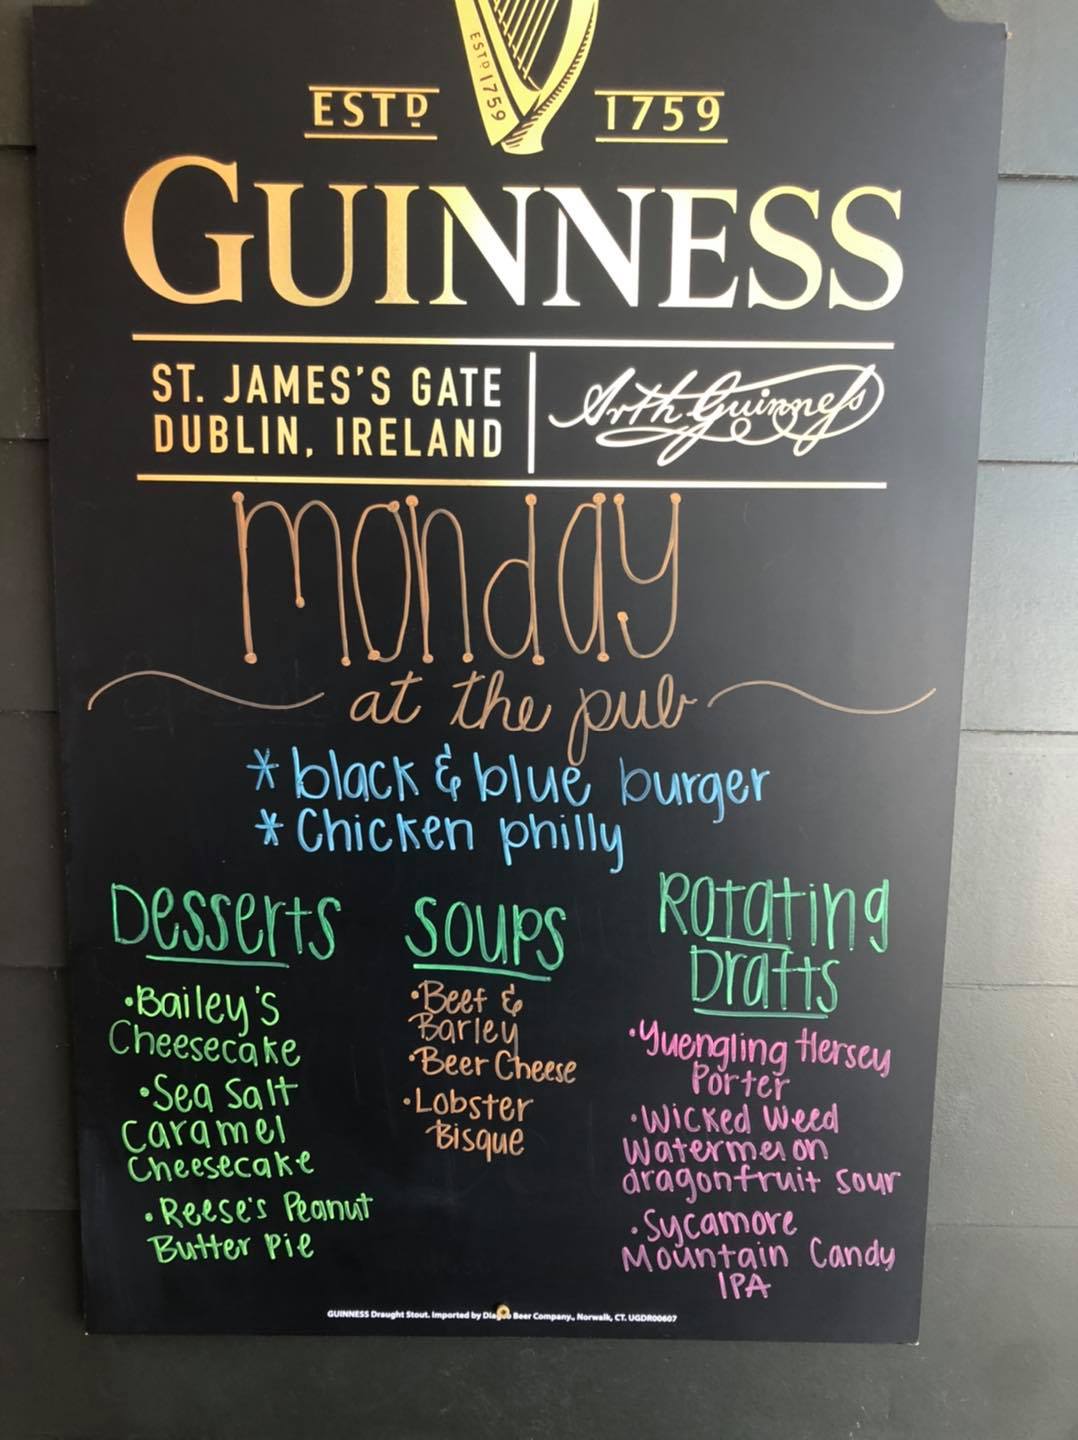 ESTD 1759
ESTD 1759
GUINNESS
ST. JAMES'S GATE
DUBLIN, IRELAND
Arth Guinness
monday
at the pub
* black & blue burger
* Chicken philly
Desserts
• Bailey's
Cheesecake
• Sea Salt
Caramel
Cheesecake
• Reese's Peanut
Butter Pie
Soups
• Beef &
Barley
• Beer Cheese
• Lobster
Bisque
Rotating
Drafts
• Yuengling Hersey
Porter
• Wicked Weed
Watermelon
dragonfruit sour
• Sycamore
Mountain Candy
IPA
GUINNESS Draught Stout. Imported by Diageo Beer Company., Norwalk, CT. UGDR00607